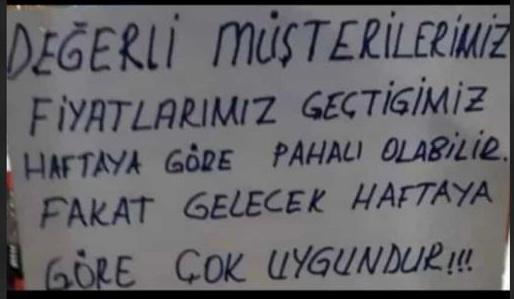 DEĞERLİ MÜŞTERİLERİMİZ
FİYATLARIMIZ GEÇTİGİMİZ
HAFTAYA GÖRE PAHALI OLABİLİR.
FAKAT GELECEK HAFTAYA
GÖRE ÇOK UYGUNDUR!!!